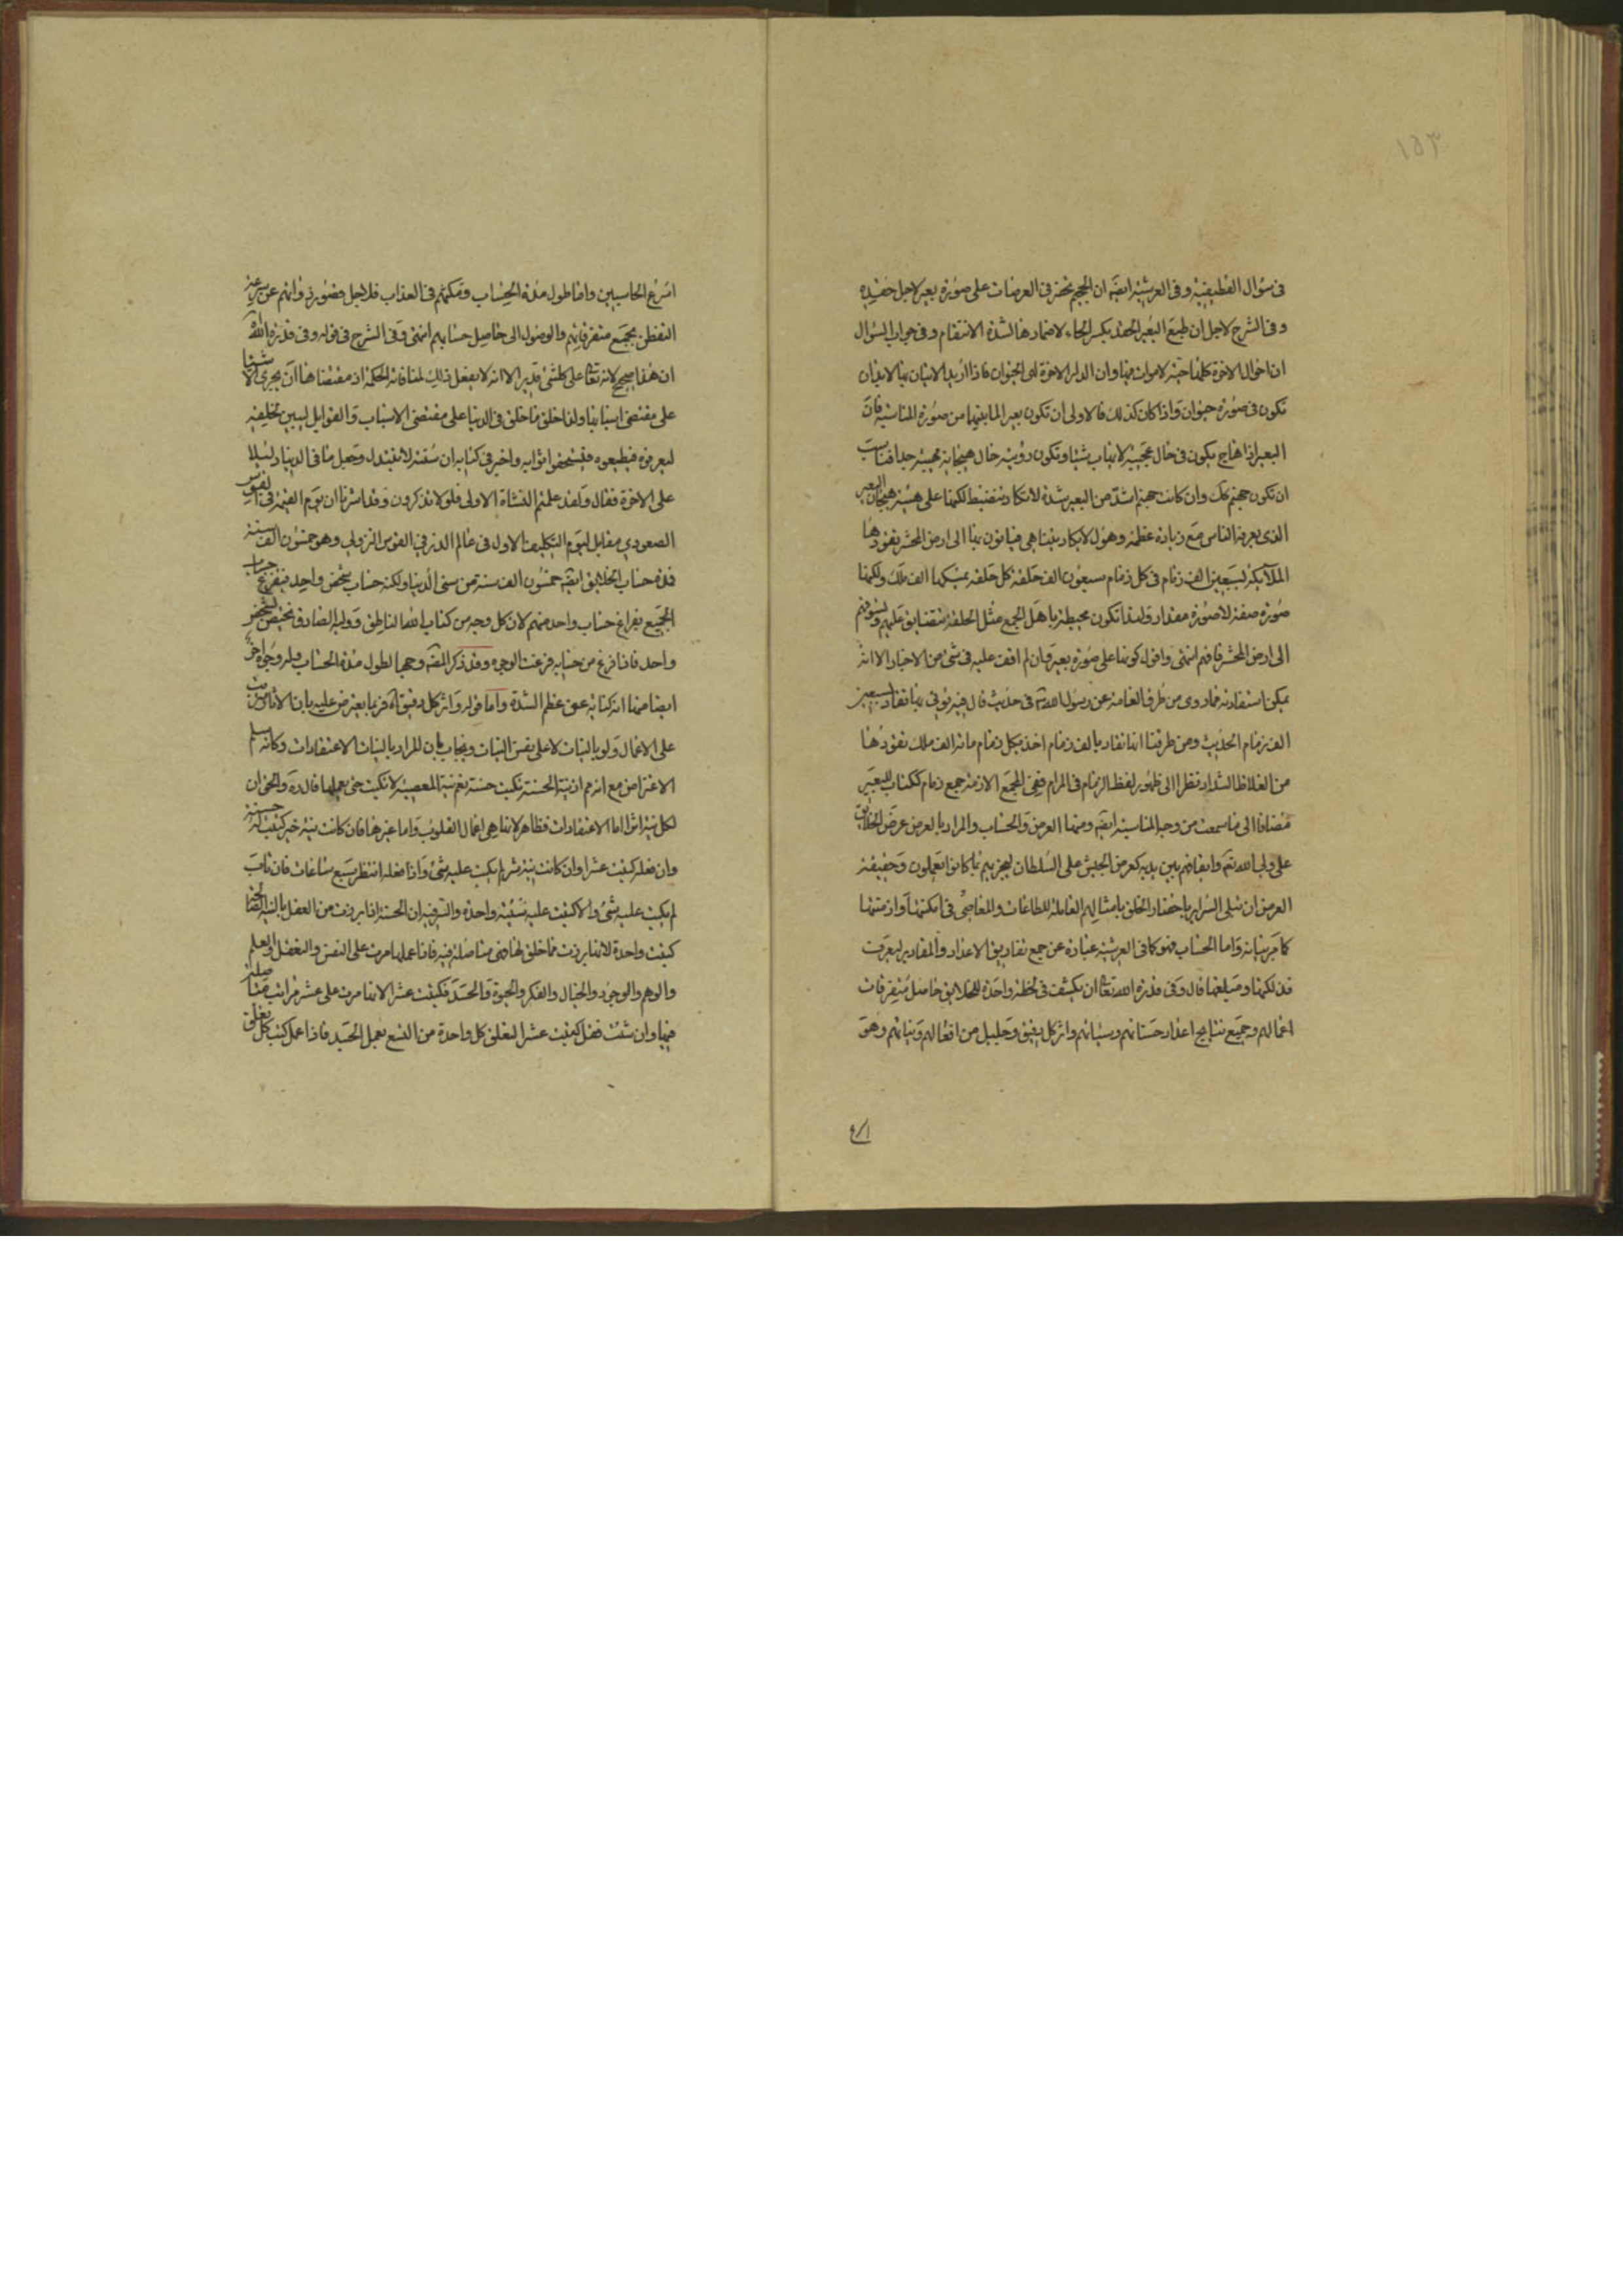 ١٥٣
في سؤال القطيفية وفي العرشية ايضا ان الجحيم تحضر في العرصات على صورة بعير لاجل حقيده
وفي الشرح لاجل ان طبع البعير الحقد بكسر الحاء لاضمارها لشدة الانتقام وفي جواب السؤال
ان احوال الاخرة كلها حية لا موات فيها وان الدار الاخرة لهي الحيوان فاذا اريد الاتيان بها لابد ان
تكون في صورة حيوان واذا كان كذلك فالاولى ان تكون بعيرا لما بينهما من صورة المناسبة فان
البعير اذا هاج يكون في حال عجيبة لا يهاب شيئا وتكون رؤية حال هيجانه مهيبة جدا فناسب
ان تكون جهنم كك وان كانت جهنم اشد من البعير شدة لا تكاد تنضبط لكنها على هيئة هيجان البعير
الذي يعرفه الناس مع زيادة عظمة وهول لا يكاد يتناهى فياتون بها الى ارض المحشر يقودها
الملائكة بسبعين الف زمام في كل زمام سبعون الف حلقة كل حلقة يمسكها الف ملك ولكنها
صورة صفة لا صورة مقدار ولهذا تكون محيطة باهل الجمع مثل الحلقة متضايق عليهم ويسوقهم
الى ارض المحشر فافهم انتهى واقول كونها على صورة بعير وان لم اقف عليه في شئ من الاخبار الا انه
يمكن استفادته مما روى من طرق العامة عن رسول الله ص في حديث قال فيه يؤتى بها تقاد بسبعين
الف زمام الحديث ومن طرقنا انها تقاد بالف زمام اخذ بكل زمام مائة الف ملك تقودها
من الغلاظ الشداد نظرا الى ظهور لفظ الزمام في المرام ففي المجمع الازمة جمع زمام ككتاب للبعير
مضافا الى ما سمعت من وجه المناسبة ايضا ومنها العرض والحساب والمراد بالعرض عرض الخلايق
على ولي الله تع وايقافهم بين يديه كعرض الجيش على السلطان ليجزيهم بما كانوا يعملون وحقيقة
العرض ان تبلى السراير باحضار الخلق بامثالهم العاملة للطاعات والمعاصي في امكنتها وازمنتها
كما مر بيانه واما الحساب فهو كما في العرشية عبارة عن جمع تفاريق الاعداد والمقادير ليعرف
فذلكتها ومبلغها قال وفي قدرة الله تعالى ان يكشف في لحظة واحدة للخلايق حاصل متفرقات
اعمالهم وجميع نتايج اعداد حسناتهم وسيئاتهم واثر كل دقيق وجليل من افعالهم ونياتهم وهو
اسرع الحاسبين واما طول مدة الحساب ومكثهم في العذاب فلاجل قصور ذواتهم عن سرعة
التفطن بجميع متفرقاتهم والوصول الى حاصل حسابهم انتهى وفي الشرح في قوله وفي قدرة الله
ان هذا صحيح لانه تعالى على كل شئ قدير الا انه لا يفعل ذلك لمنافاته الحكمة اذ مقتضاها ان يجري الاشياء
على مقتضى اسبابها ولذا خلق ما خلق في الدنيا على مقتضى الاسباب والقوابل ليبين لخليقته
ليعرفوه فيطيعوه فيستحقوا ثوابه واخبر في كتابه ان سنته لا تتبدل وجعل ما في الدنيا دليلا
على الاخرة فقال ولقد علمتم النشاة الاولى فلولا تذكرون وقد اشرنا ان يوم القيمة في القوس
الصعودي مقابل ليوم التكليف الاول في عالم الذر في القوس النزولي وهو خمسون الف سنة
فمدة حساب الخلايق ايضا خمسون الف سنة من سني الدنيا ولكنه حساب شخص واحد فيفرغ حساب
الجميع بفراغ حساب واحد منهم لان كل وجه من كتاب الله الناطق ووليه الصادق يختص بشخص
واحد فاذا فرغ من حسابه فرغت الوجوه وقد ذكر المص وجها لطول مدة الحساب وله وجوه اخر
ايضا منها انه كناية عن عظم الشدة واما قوله واثر كل دقيق اه فربما يعترض عليه بان الاثار مترتب
على الاعمال ولو بالنيات لا على نفس النيات ويجاب بان المراد بالنيات الاعتقادات وكانه سلم
الاعتراض مع انه عم ان نية الحسنة تكتب حسنة نعم نية المعصية لا تكتب حتى يعملها قال ره والحق ان
لكل نية اثرا اما الاعتقادات فظاهر لانها هي اعمال القلوب واما غيرها فان كانت نية خير كتبت له حسنة
وان فعله كتبت عشرا وان كانت نية شر لم يكتب عليه شئ واذا فعله انتظر سبع ساعات فان تاب
لم يكتب عليه شئ والا كتبت عليه سيئة واحدة والسر فيه ان الحسنة اذا برزت من العقل بالنية الخالصة
كتبت واحدة لانها برزت مما خلق لها فهي متاصلة فيه فاذا عملها مرت على النفس والتعقل والعلم
والوهم والوجود والخيال والفكر والحيوة والجسد فكتبت عشرا لانها مرت على عشر مراتب متاصلة
فيها وان شئت فقل كتبت عشرا لتعلق كل واحدة من التسع بعمل الجسد فاذا عمل كتب كل تعلق